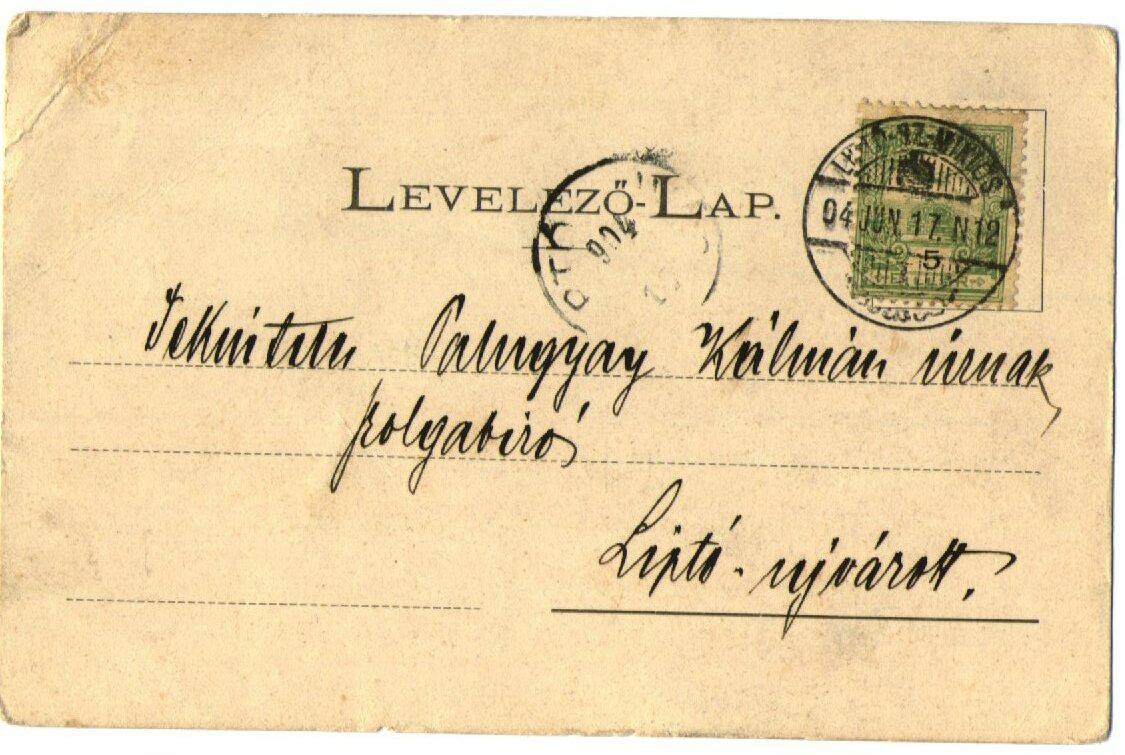 LEVELEZŐ-LAP.
LIPTÓ-SZ-MIKLÓS
04 JUN. 17. N12
5
904
Tekintetes Palugyay Kálmán úrnak,
szolgabiró
Liptó-ujvárott.